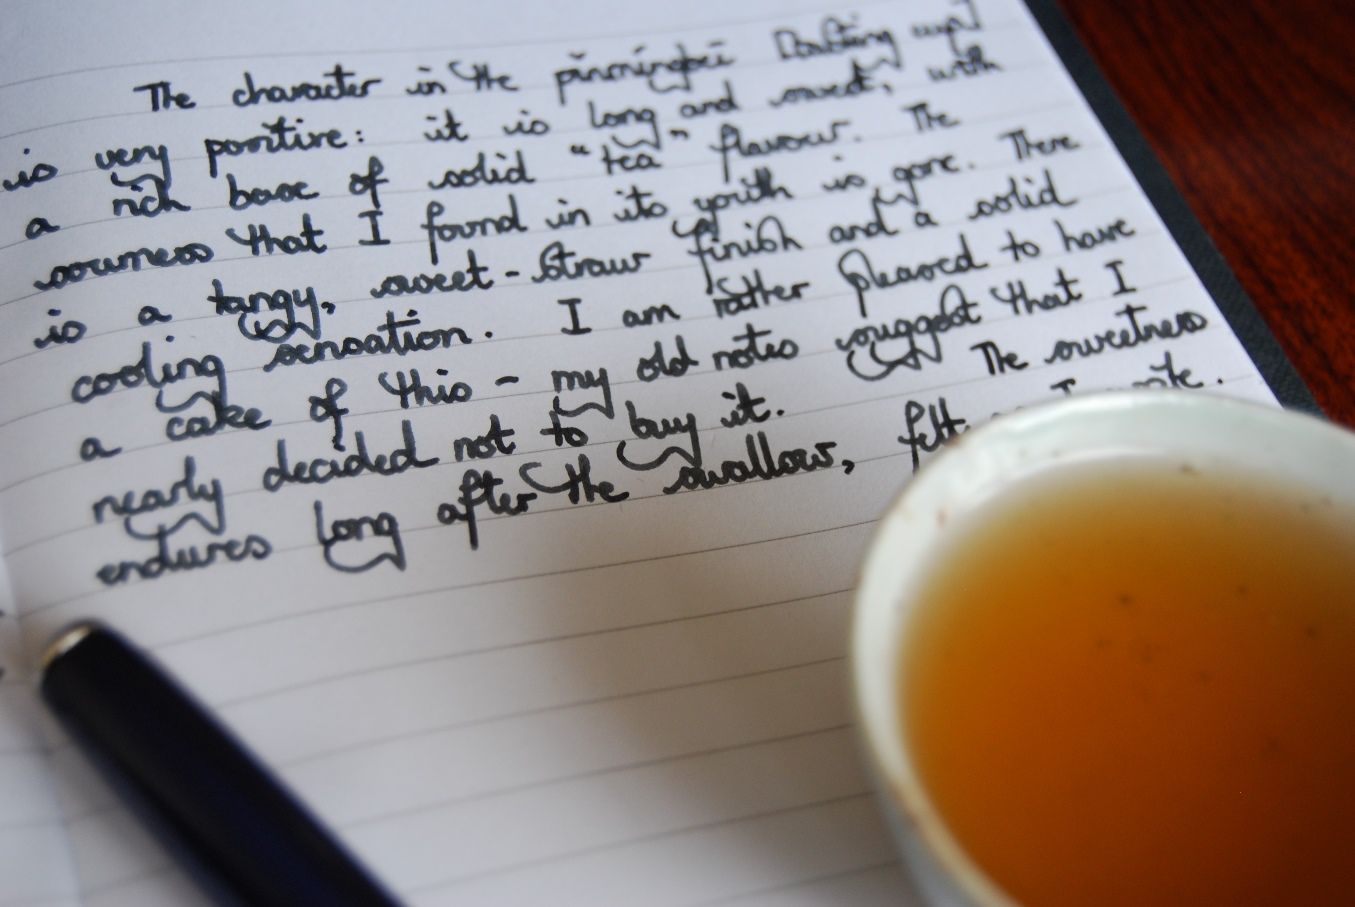 The character in the pinmingbei [Drafting cup]
is very positive: it is long and sweet, with
a rich base of solid "tea" flavour. The
sourness that I found in its youth is gone. There
is a tangy, sweet-straw finish and a solid
cooling sensation. I am rather pleased to have
a cake of this - my old notes suggest that I
nearly decided not to buy it. The sweetness
endures long after the swallow, felt as I write.